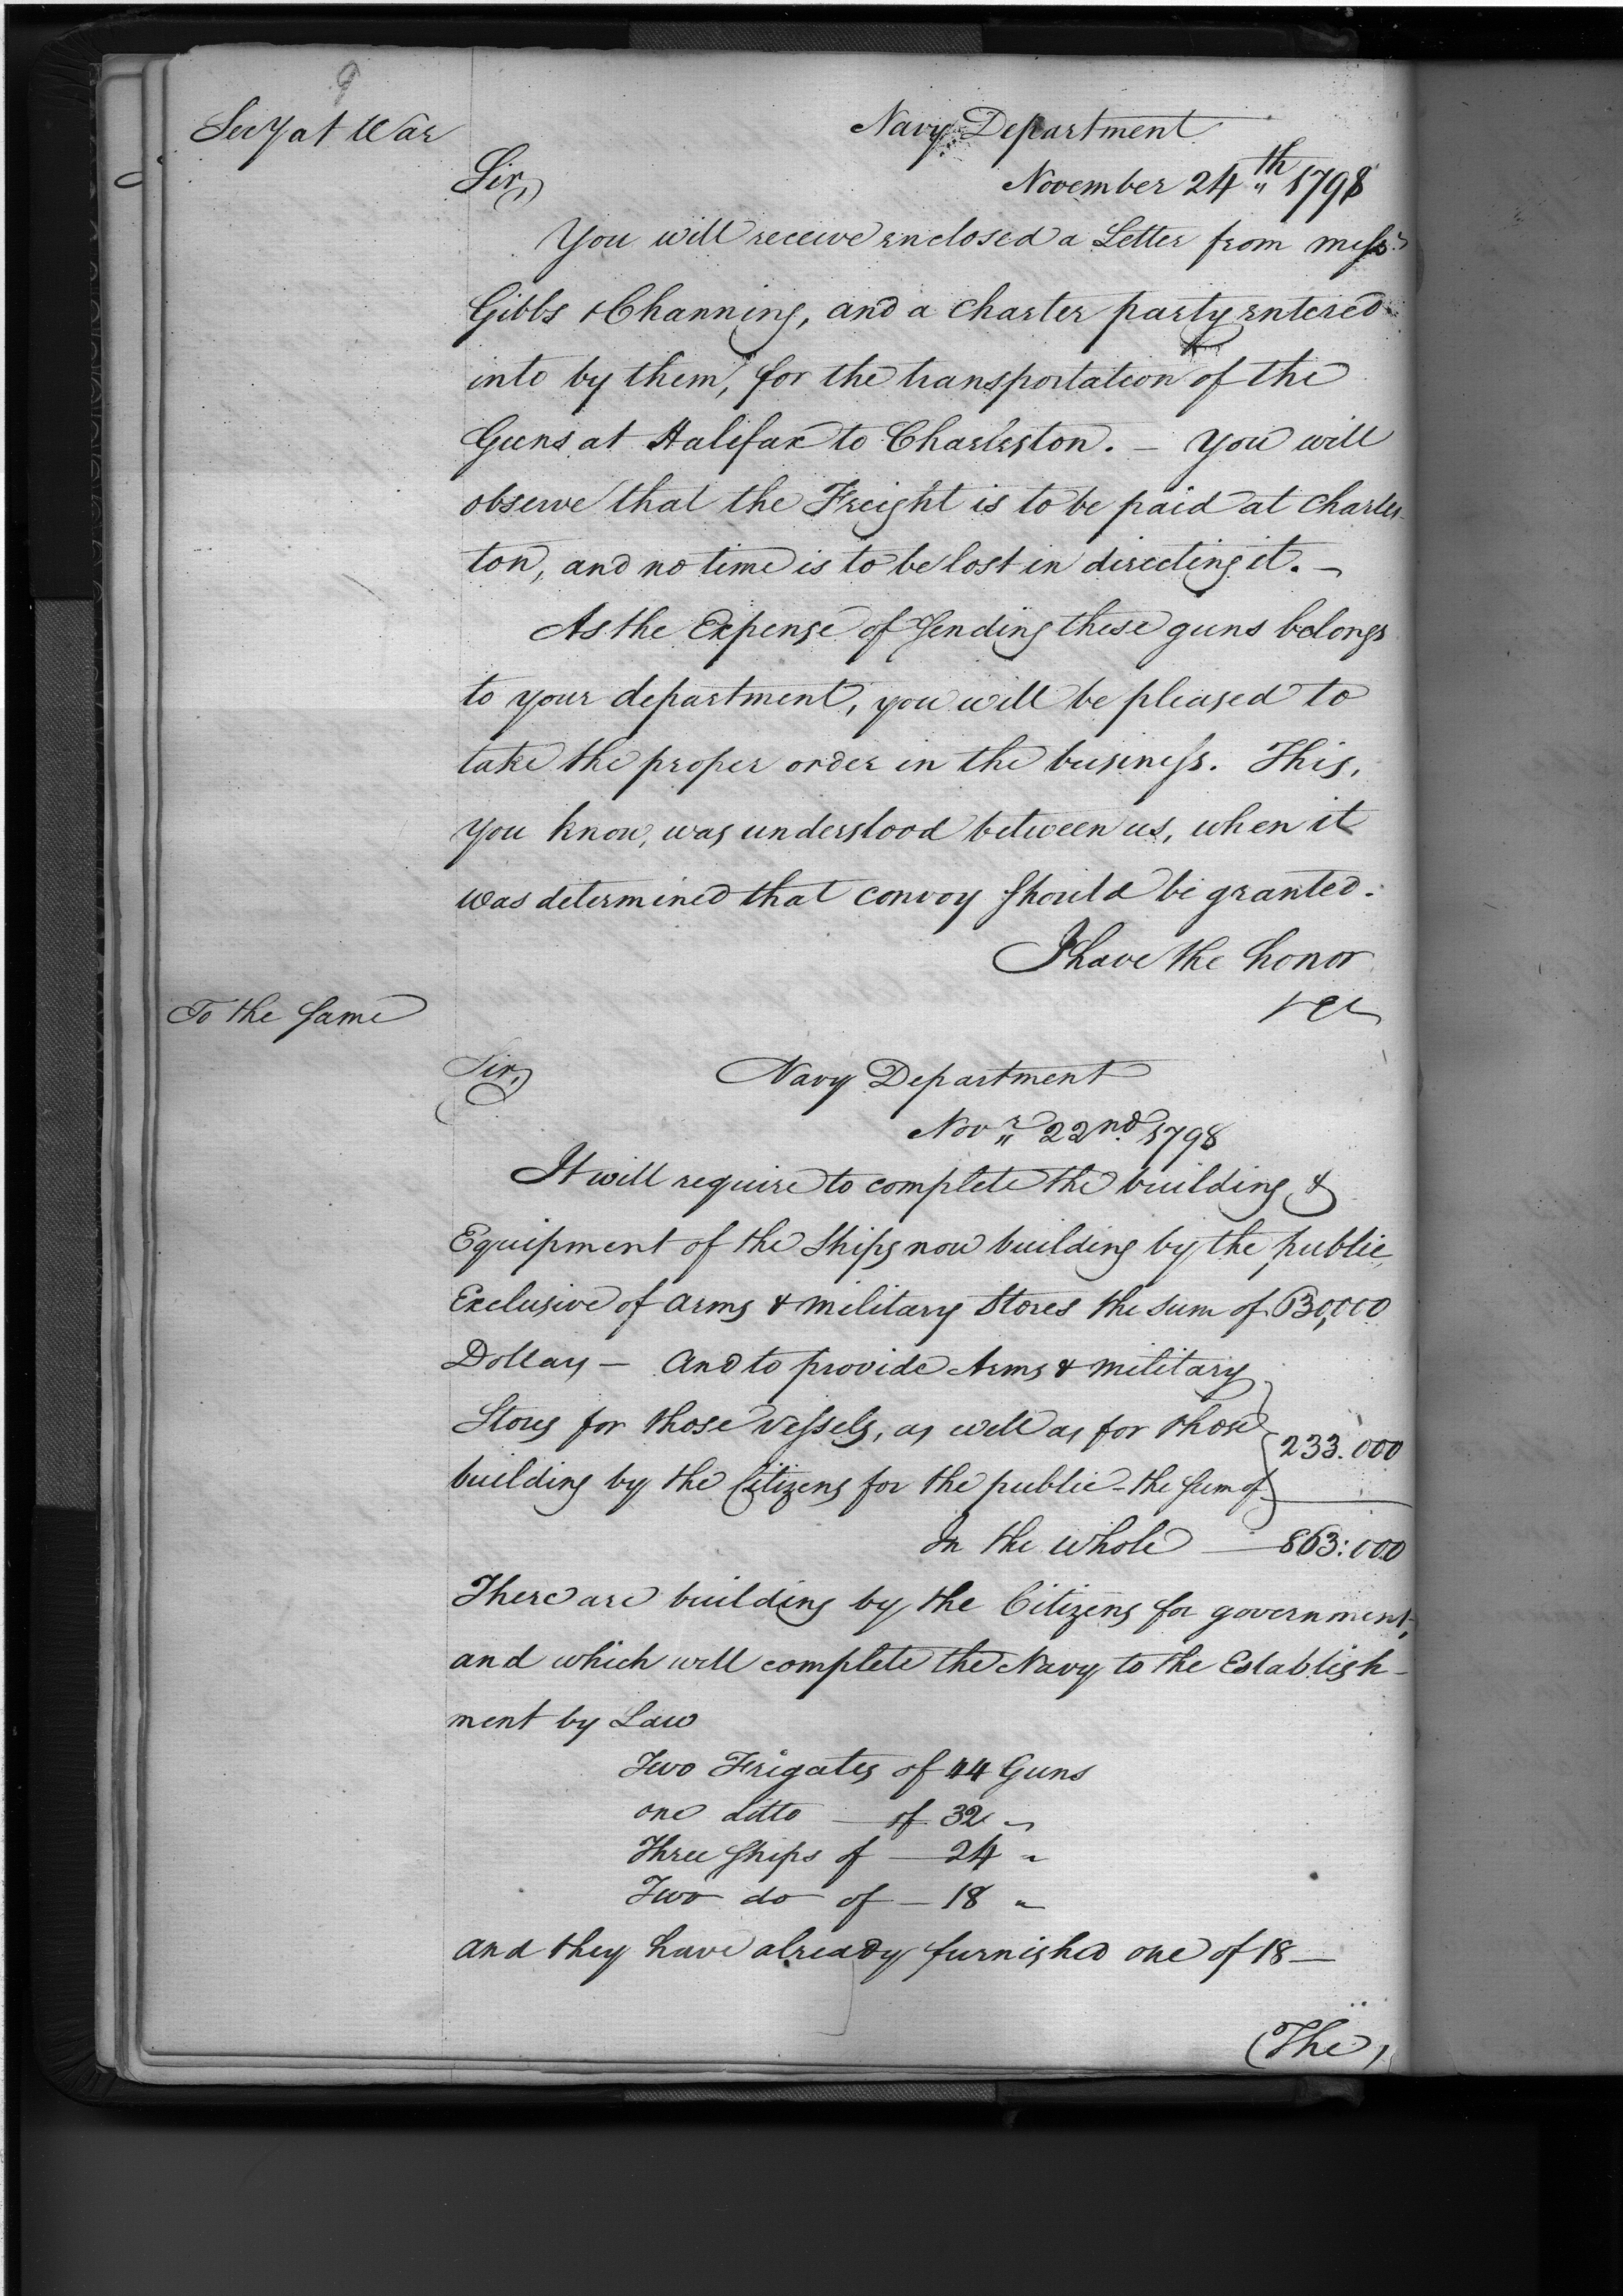 9
Secy at War
Navy Department
Sir,
November 24th 1798
You will receive enclosed a Letter from messrs
Gibbs & Channing, and a charter party entered
into by them, for the transportation of the
Guns at Halifax to Charleston. — You will
observe that the Freight is to be paid at Charles-
ton, and no time is to be lost in directing it. —
As the Expense of sending these guns belongs
to your department, you will be pleased to
take the proper order in the business. This,
you know, was understood between us, when it
was determined that convoy should be granted.
I have the honor
&c
To the same
Sir,
Navy Department
Novr 22nd 1798
It will require to complete the building &
Equipment of the Ships now building by the public,
Exclusive of arms & military Stores the sum of 630,000
Dollars — And to provide Arms & military
Stores for those Vessels, as well as for those
building by the Citizens for the public - the sum of } 233.000
In the whole — 863:000
There are building by the Citizens for government,
and which will complete the Navy to the Establish-
ment by Law
Two Frigates of 44 Guns
one ditto — of 32 "
Three Ships of — 24 "
Two do of — 18 "
and they have already furnished one of 18 —
(The)